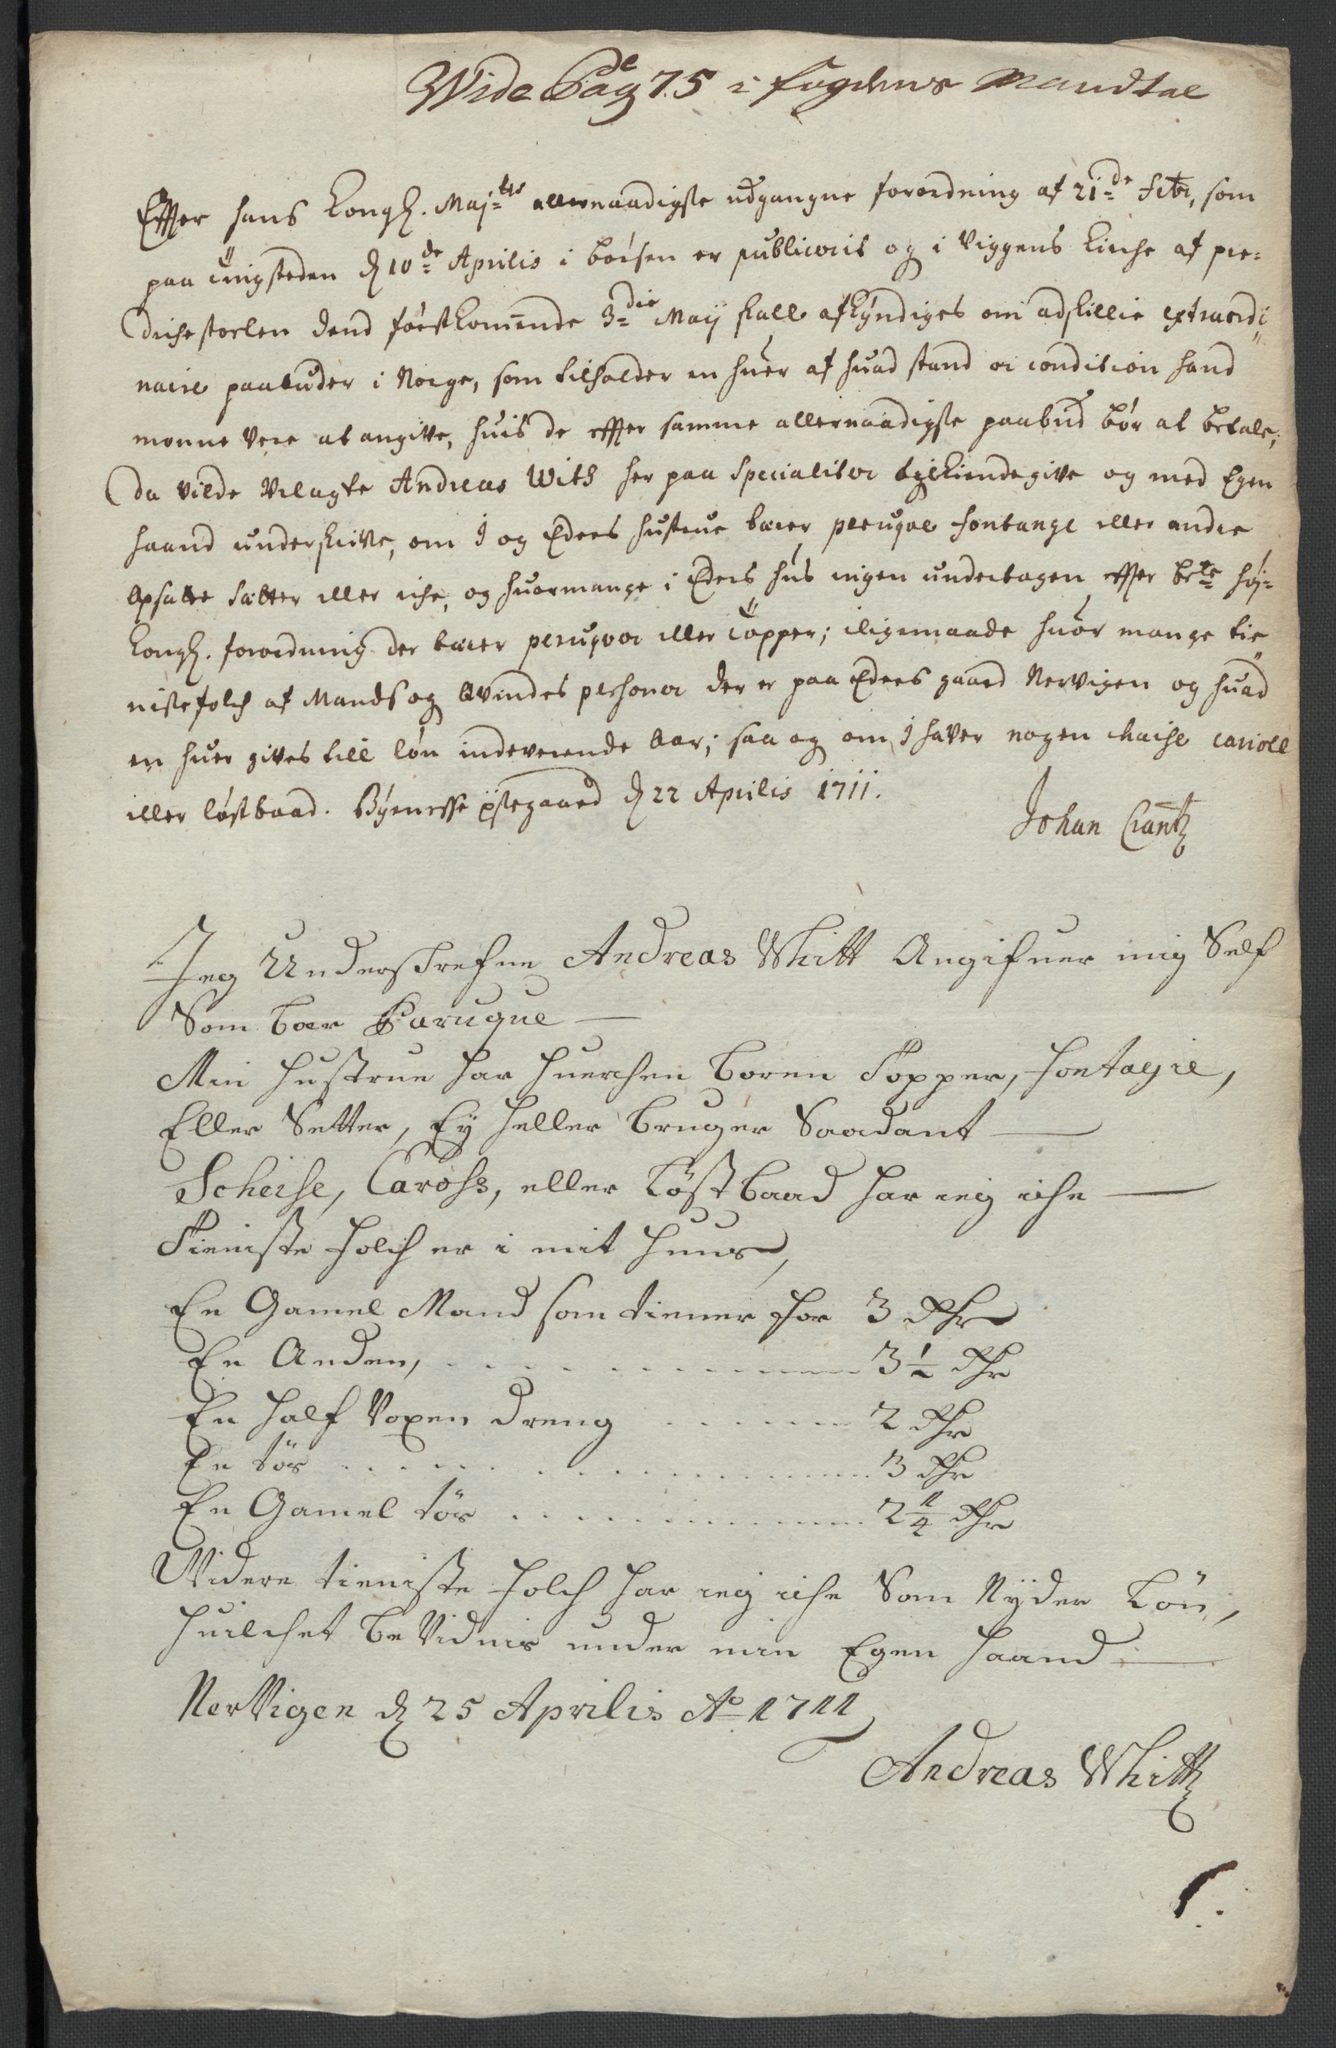 Wide Pag 75 i fogdens Mandtal
Effter hans Kongl. Maj:ts allernaadigste udgangne forordning af 21:de Febr, som
paa tingsteden d 10:de Aprilis i Børsen er publicerit og i Viggens Kirche af præ-
dichestoelen dend førstkom̄ende 3:die Maij skall afkyndiges om adskillie extraordi-
naire paabuder i Norge, som tilholder en huer af huad stand oc condition hand
monne være at angive, huis de effter samme allernaadigste paabud bør at betale;
da vilde Velagte Andreas With her paa Specialiter tilkiendegive og med Egen
haand underskrive, om I og Eders hustrue bærer peruqve fontange eller andre
Opsatte Sætter eller iche, og huormange i Eders huus ingen undertagen effter br:te høy-
Kongl. forordning der bærer peruqver eller topper; iligemaade huor mange tie-
nistefolch af Mands og Qvindes persohner der er paa Eders gaard Nervigen og huad
en huer gives till løn indeværende Aar; saa og om I haver nogen chaise cariol
eller løstbaad. Byenesse østegaard d 22 Aprilis 1711.
Johan Crantz
Jeg Underschrefne Andreas Whitt Angifuer mig Self
Som bær Paruque
Min hustrue har huerchen boren Topper, fontagie,
Eller Setter, Ey heller bruger Saadant
Scheise, Caross, eller Løstbaad har ieg iche
Tieniste folch er i mit huus,
En Gamel Mand som tiener for 3 Rdr
En Anden, 3½ Rdr
En half Voxen dreng 2 Rdr
En tøs 3 Rdr
En Gamel tøs 2¼ Rdr
Widere tieniste folch har ieg iche Som Nyder Løn,
huilchet beVidnis under min Egen haand
NerVigen d 25 Aprilis Ao 1711
Andreas Whitt